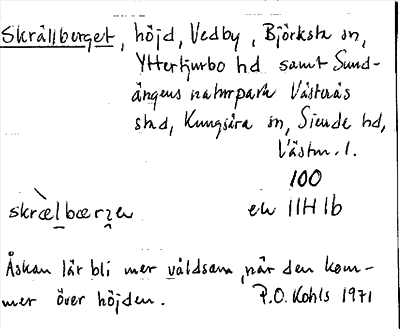 Skrällberget, höjd, Vedby, Björksta sn,
Yttertjurbo hd samt Sund-
ängens naturpark Västerås
stad, Kungsåra sn, Siende hd,
Västm. l.
100
skræ̀lbærʒen ek 11H 1b
Åskan lär bli mer våldsam när den kom-
mer över höjden. P.O. Kohls 1971